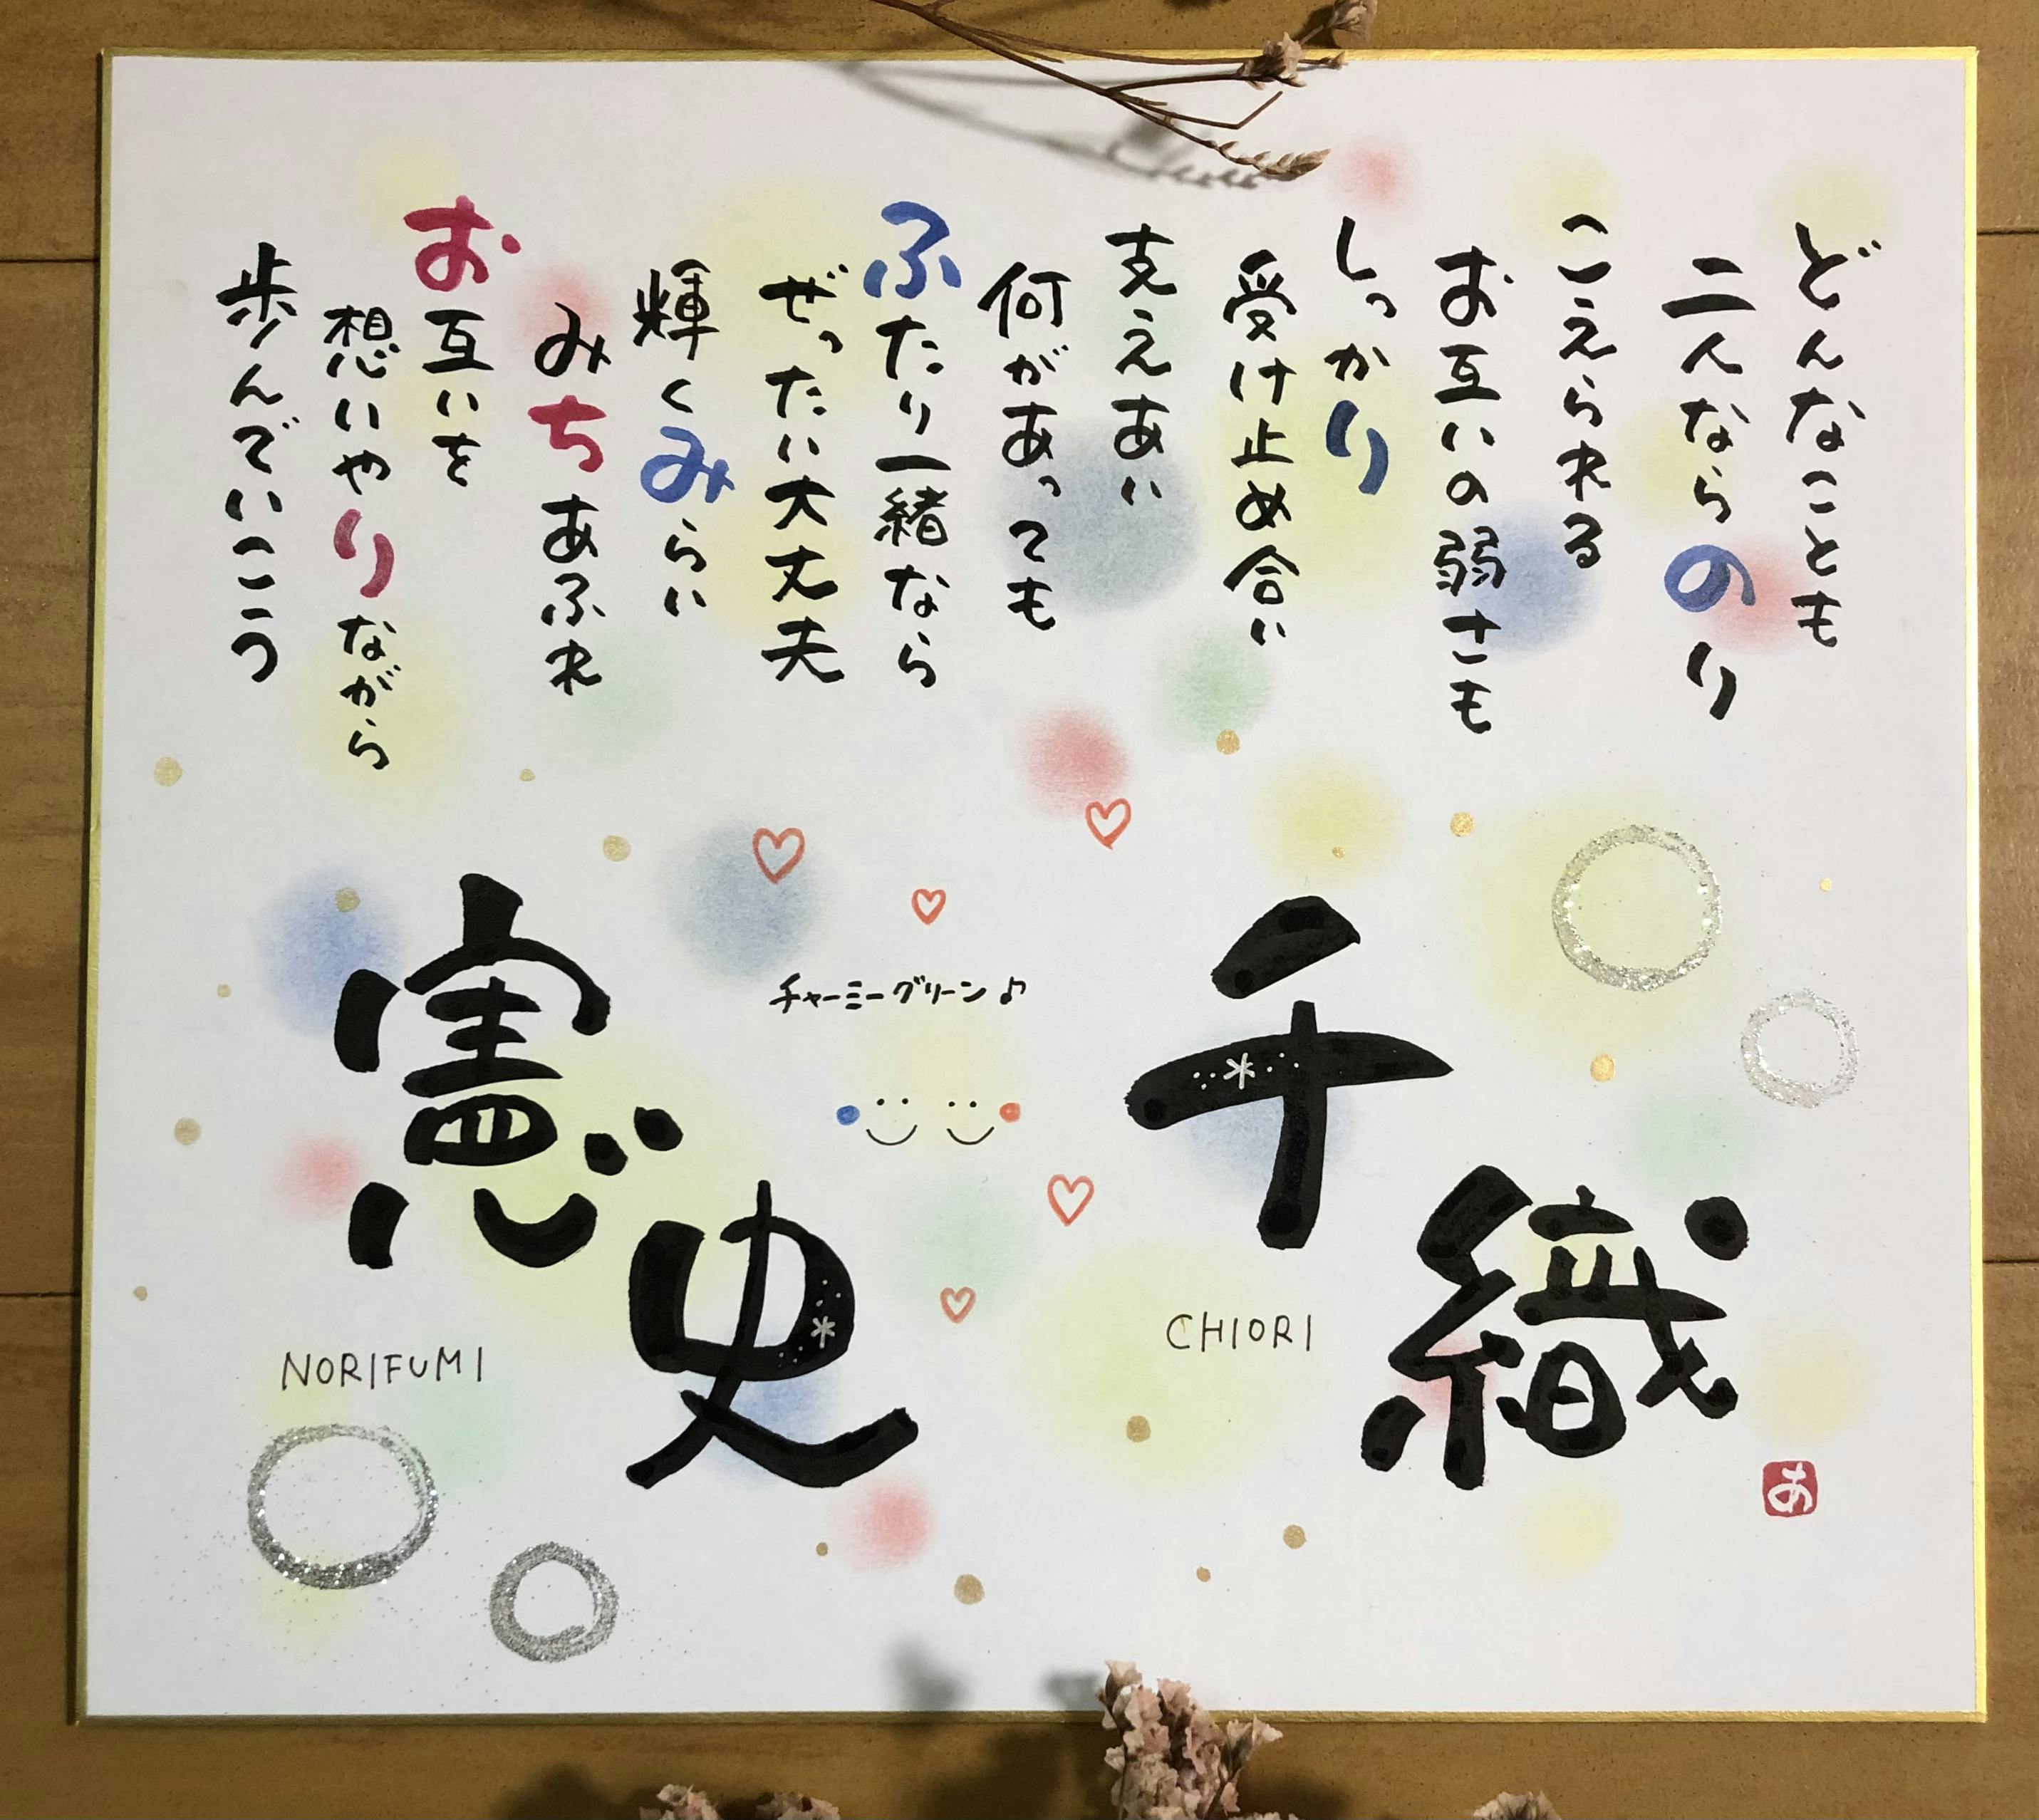 どんなことも
二人ならのり
こえられる
お互いの弱さも
しっかり
受け止め合い
支えあい
何があっても
ふたり一緒なら
ぜったい大丈夫
輝くみらい
みちあふれ
お互いを
想いやりながら
歩んでいこう
千織
CHIORI
チャーミーグリーン♪
憲史
NORIFUMI
あ